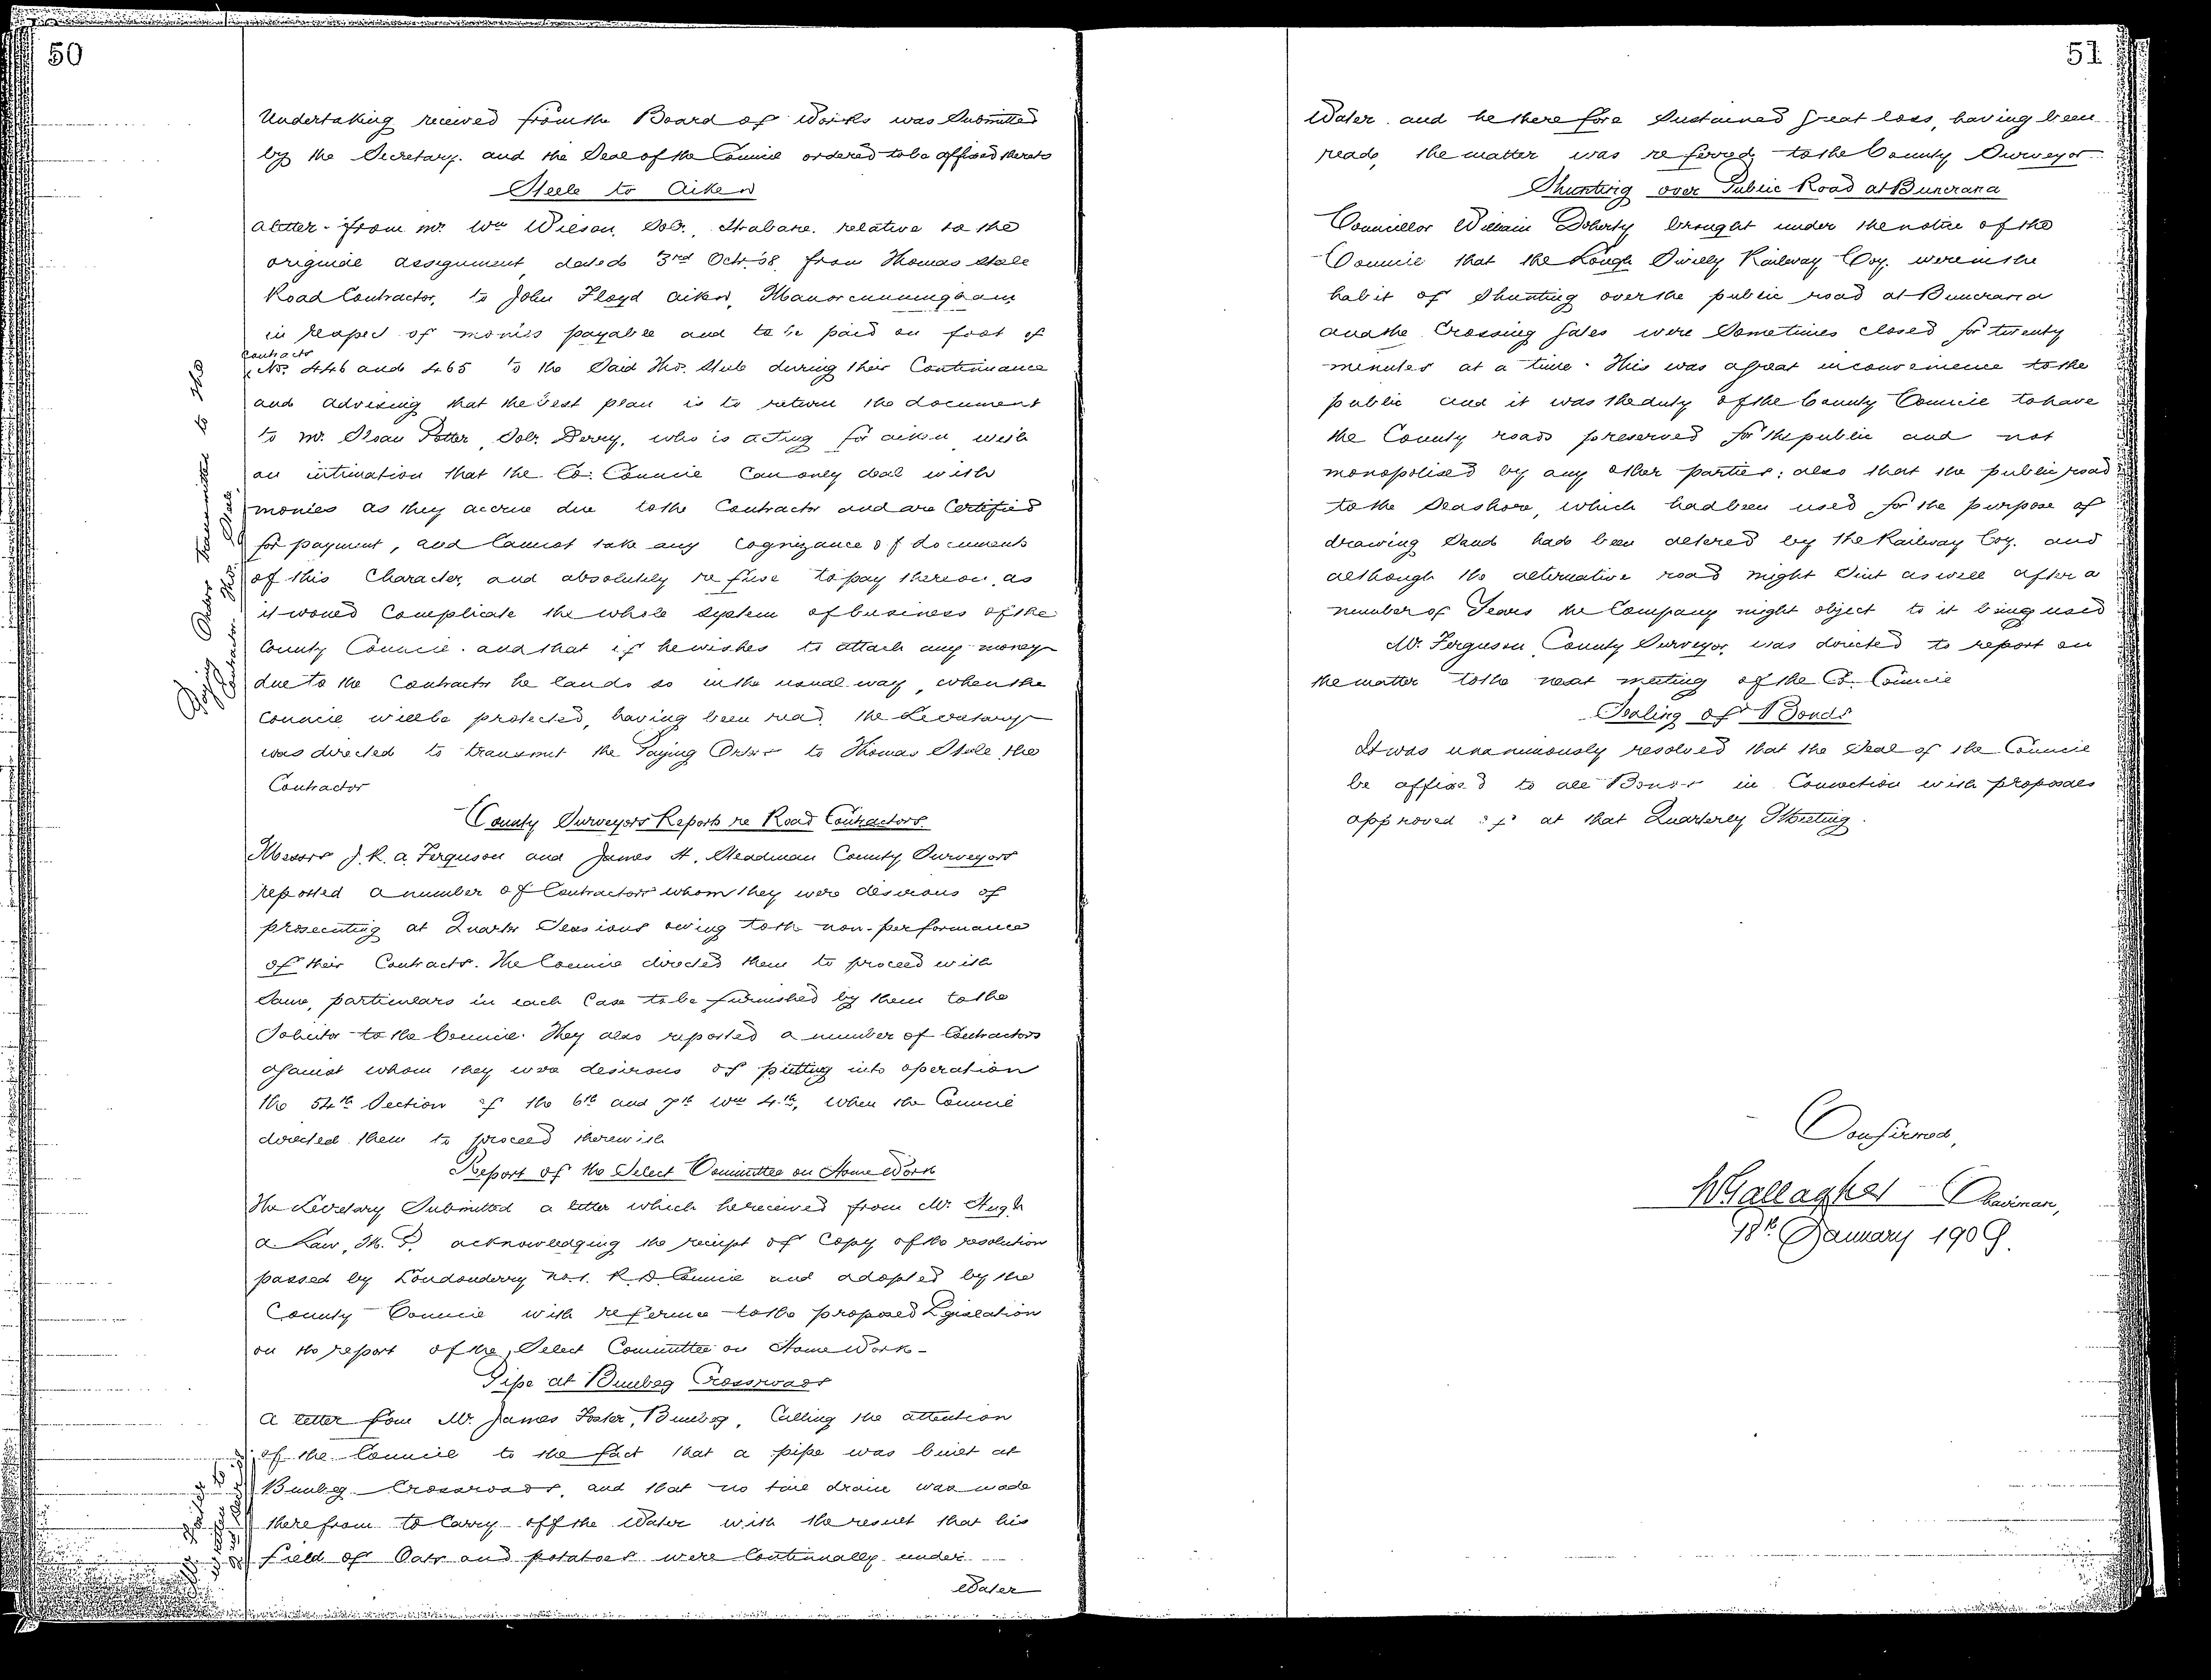 50
Undertaking received from the Board of Works was Submitted
by the Secretary. and the Seal of the Council ordered to be affixed thereto
Steele to Aiken
A letter from Mr. Wm Wilson, Solr., Strabane. relative to the
original assignment dated 3rd Octr. '08 from Thomas Steele
Road Contractor, to John Floyd Aiken, Manorcunningham
in respect of monies payable and to be paid on foot of
Contracts
Nos. 446 and 465 to the Said Thos. Steele during their Continuance
and advising that the best plan is to return the document
to Mr. Sloan Potter, Solr. Derry, who is acting for Aiken with
an intimation that the Co: Council Can only deal with
monies as they accrue due to the Contractor and are Certified
for payment, and Cannot take any Cognizance of documents
of this Character, and absolutely refuse to pay thereon, as
it would Complicate the whole system of business of the
County Council. and that if he wishes to attach any money
due to the Contractor he can do so in the usual way, when the
Council will be protected, having been read, the Secretary
was directed to transmit the Paying Order to Thomas Steele the
Contractor
Paying Orders transmitted to the
Contractor Thos. Steele
County Surveyors Reports re Road Contractors.
Messrs J. R. A. Ferguson and James H. Steadman County Surveyors
reported a number of Contractors whom they were desirous of
prosecuting at Quarter Sessions owing to the non-performance
of their Contracts. The Council directed them to proceed with
Same, particulars in each Case to be furnished by them to the
Solicitor to the Council. They also reported a number of Contractors
against whom they were desirous of putting into operation
the 54th Section of the 6th and 7th Wm 4th, when the Council
directed them to proceed therewith
Report of the Select Committee on Home Work
The Secretary Submitted a letter which he received from Mr. Hugh
A. Law, M. P. acknowledging the receipt of Copy of the resolution
passed by Londonderry No. 1. R. D. Council and adopted by the
County Council with reference to the proposed Legislation
on the report of the Select Committee on Home Work -
Pipe at Bunbeg Crossroads
A letter from Mr. James Foster, Bunbeg, Calling the attention
of the Council to the fact that a pipe was built at
Bunbeg Crossroads, and that no tail drain was made
therefrom to Carry off the Water with the result that his
field of Oats and potatoes were Continually under
Water
51
Water and he therefore Sustained great loss, having been
read, the matter was referred to the County Surveyor
Shunting over Public Road at Buncrana
Councillor William Doherty brought under the notice of the
Council that the Lough Swilly Railway Coy. were in the
habit of Shunting over the public road at Buncrana
and the Crossing gates were Sometimes closed for twenty
minutes at a time. This was a great inconvenience to the
public and it was the duty of the County Council to have
the County roads preserved for the public and not
monopolised by any other parties; also that the public road
to the Seashore, which had been used for the purpose of
drawing Sand had been altered by the Railway Coy. and
although the alternative road might Suit as well after a
number of Years the Company might object to it being used
Mr. Ferguson County Surveyor, was directed to report on
the matter to the next meeting of the Co. Council
Sealing of Bonds
It was unanimously resolved that the Seal of the Council
be affixed to all Bonds in Connection with proposals
approved of at that Quarterly Meeting.
Confirmed,
W Gallagher - Chairman,
18th January 1909.